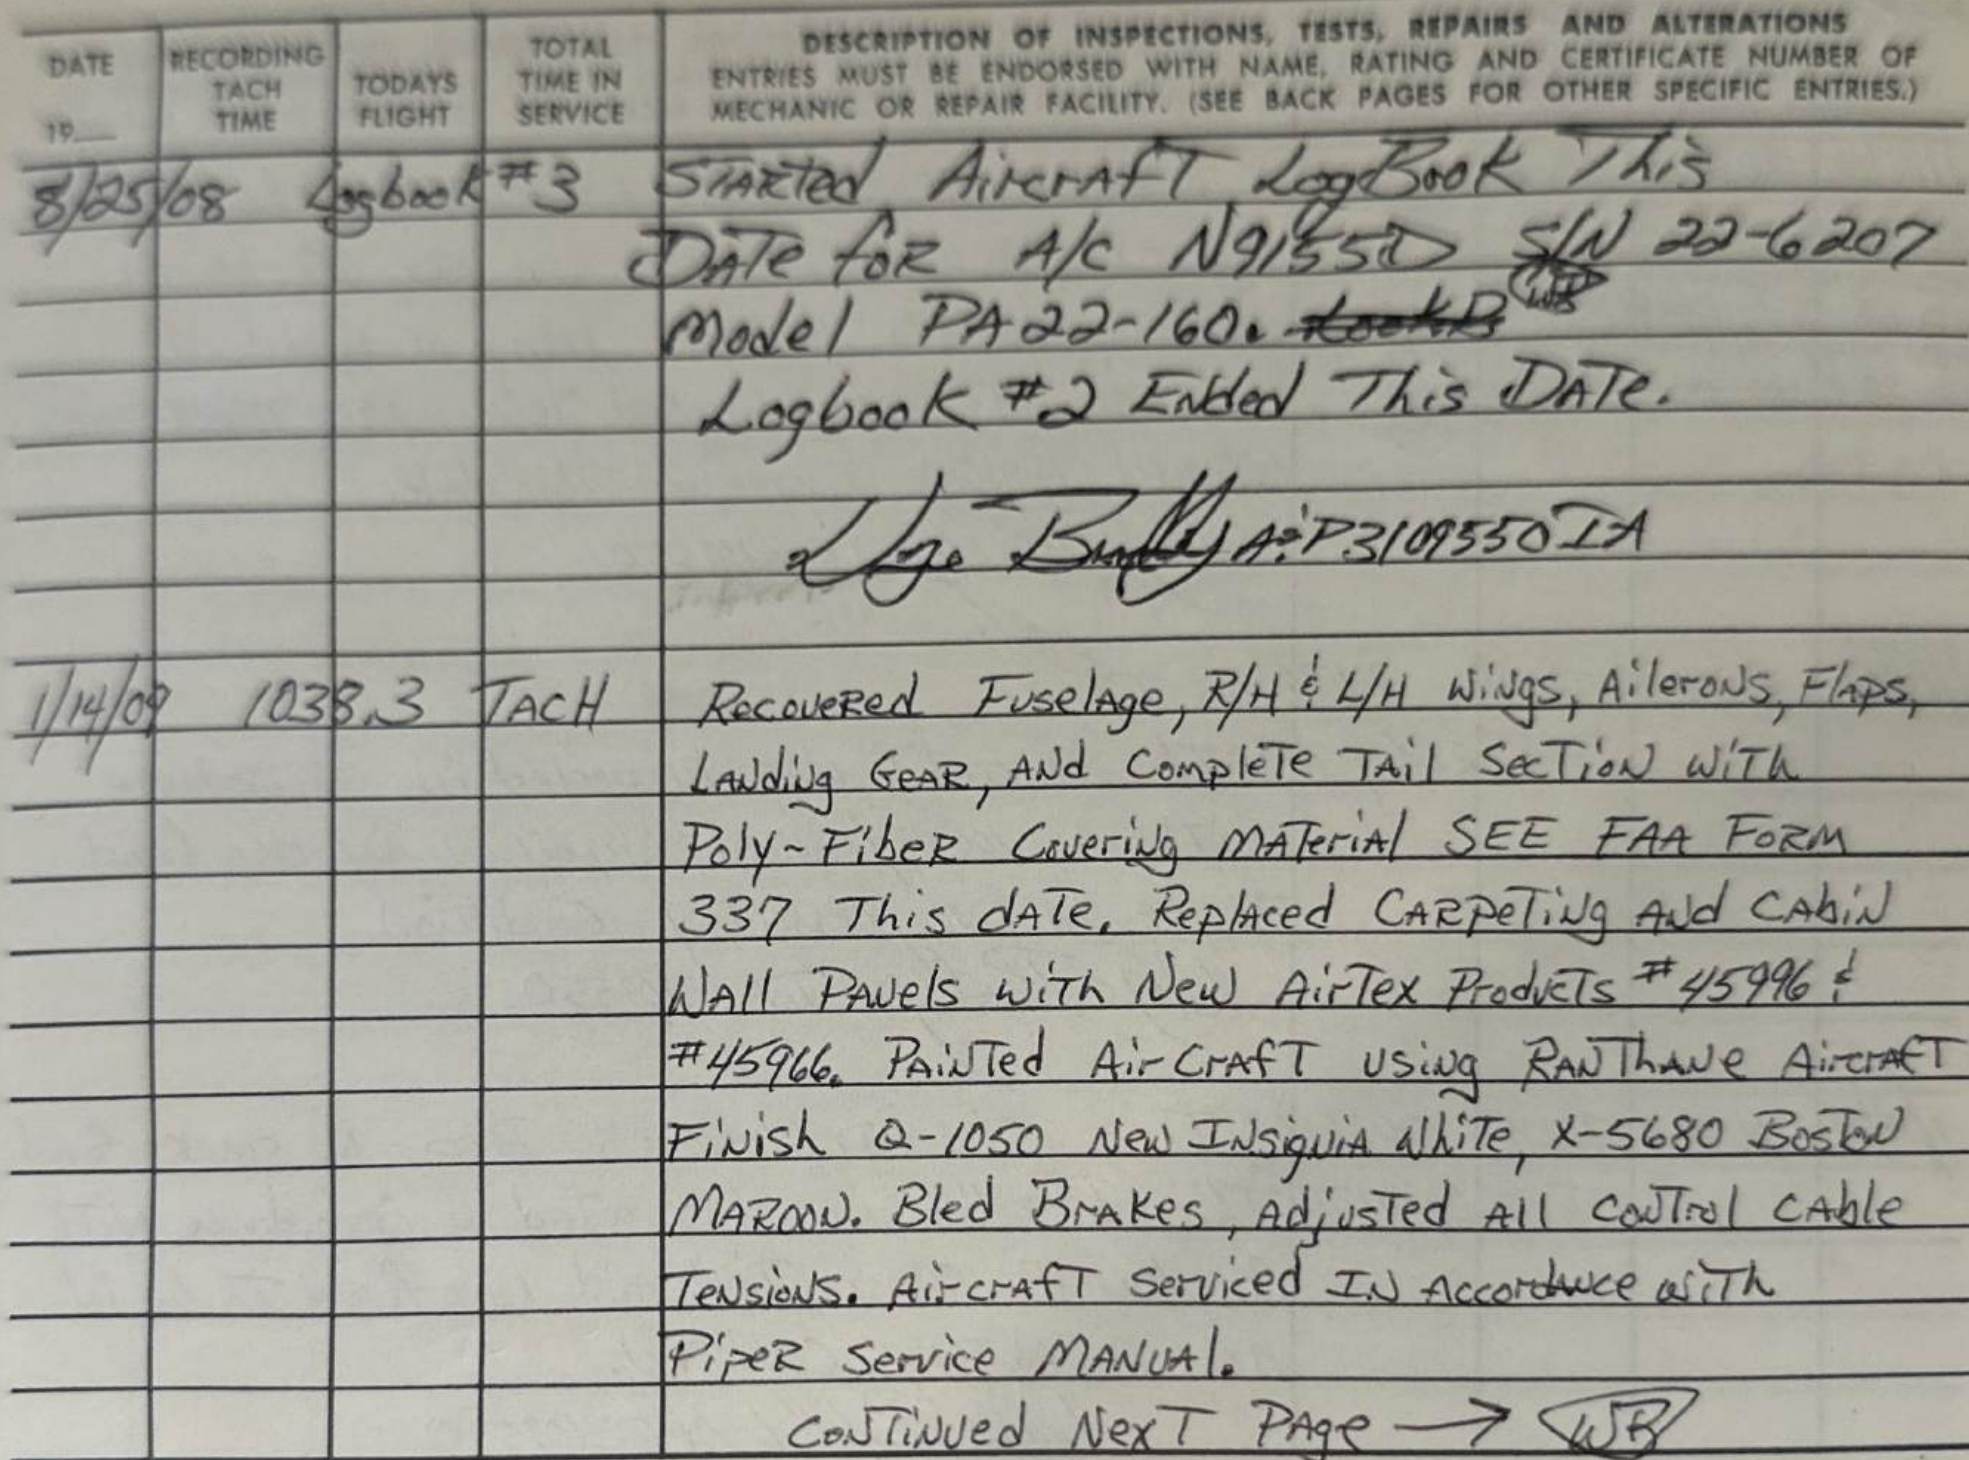 DATE
19__
RECORDING
TACH
TIME
TODAYS
FLIGHT
TOTAL
TIME IN
SERVICE
DESCRIPTION OF INSPECTIONS, TESTS, REPAIRS AND ALTERATIONS
ENTRIES MUST BE ENDORSED WITH NAME, RATING AND CERTIFICATE NUMBER OF
MECHANIC OR REPAIR FACILITY. (SEE BACK PAGES FOR OTHER SPECIFIC ENTRIES.)
8/25/08 Logbook #3 STARTED AircrAfT LogBook This
DATe foR A/C N9155D S/N 22-6207
Model PA22-160. WB
Logbook #2 Ended This DATe.
A&P3109550IA
1/14/09 1038.3 TACH Recovered Fuselage, R/H & L/H Wings, Ailerons, Flaps,
Landing Gear, and Complete Tail Section with
Poly-Fiber Covering Material SEE FAA FORM
337 This date. Replaced Carpeting and Cabin
Wall Panels with New AirTex Products #45996 &
#45966. Painted AirCraft using RanThane Aircraft
Finish Q-1050 New Insignia White, X-5680 Boston
Maroon. Bled Brakes, adjusted all control cable
Tensions. Aircraft serviced IN Accordance with
Piper Service Manual.
Continued Next Page → WB